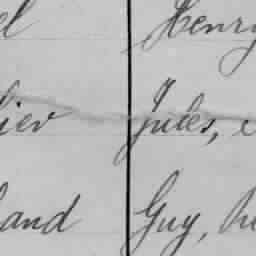 el Henry
lier Jules, e
land Guy, he